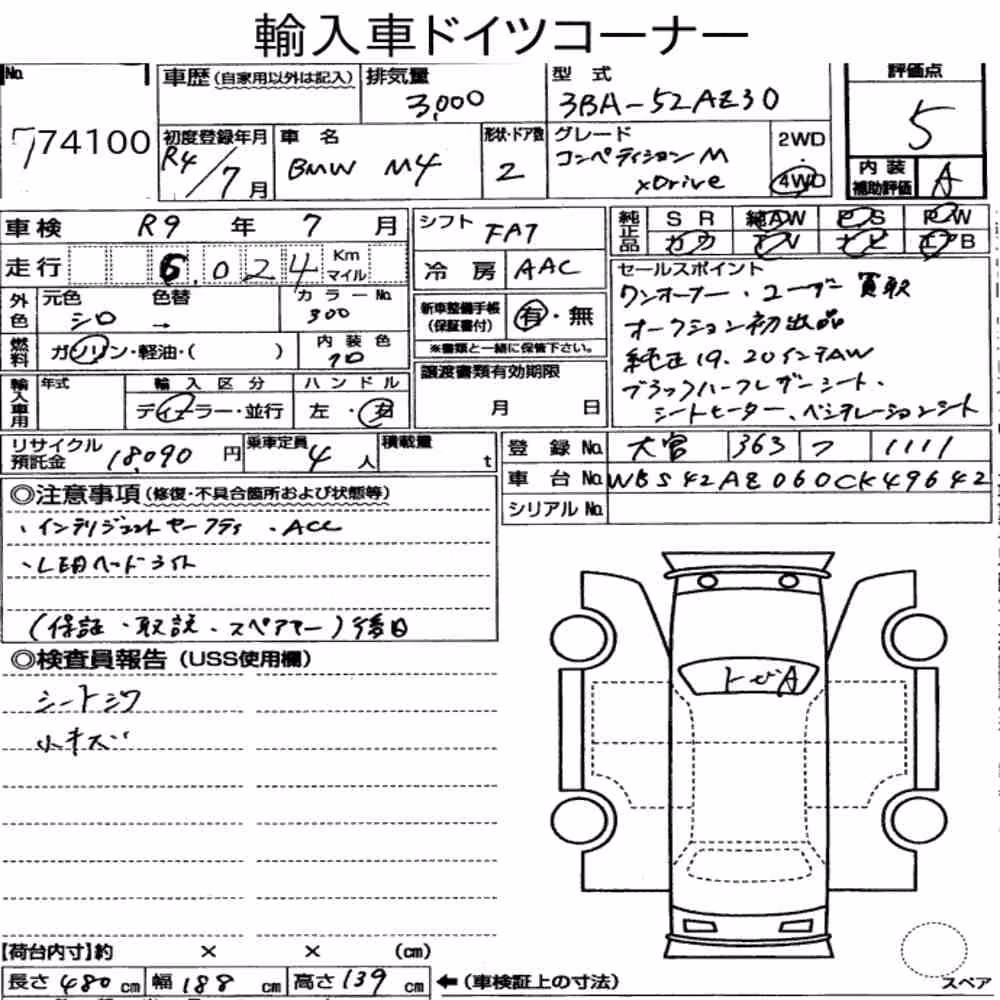 輸入車ドイツコーナー
No. 774100
車歴(自家用以外は記入)
排気量 3,000
型式 3BA-52AZ30
評価点 5
初度登録年月 R4/7月
車名 BMW M4
形状・ドア数 2
グレード コンペティションM xDrive
2WD・4WD
内装補助評価 A
車検 R9年 7月
走行 6,024 Km マイル
シフト FAT
冷房 AAC
純正品 SR 純AW PS PW
カワ TV ナビ エアB
外色 元色 シロ 色替 → カラーNo. 300
燃料 ガソリン・軽油・( )
内装色 クロ
新車整備手帳(保証書付) 有・無
※書類と一緒に保管下さい。
セールスポイント
ワンオーナー・ユーザー買取
オークション初出品
純正19.20インチAW
ブラックハーフレザーシート、
シートヒーター、ベンチレーションシート
輸入車用 年式
輸入区分 ディーラー・並行
ハンドル 左・右
譲渡書類有効期限
月 日
リサイクル預託金 18,090円
乗車定員 4人
積載量 t
登録No. 大宮 363 フ 1111
車台No. WBS42AZ060CK49642
シリアルNo.
◎注意事項(修復・不具合箇所および状態等)
、インテリジェントセーフティ・ACC
、LEDヘッドライト
(保証・取説・スペアキー)後日
◎検査員報告(USS使用欄)
シートシワ
小キズ
トビA
【荷台内寸】約 × × (cm)
長さ 480 cm 幅 188 cm 高さ 139 cm ←(車検証上の寸法)
スペア